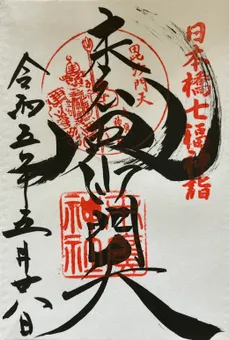 日本橋七福神詣
毘沙門天
毘沙門天
令和五年五月廿八日